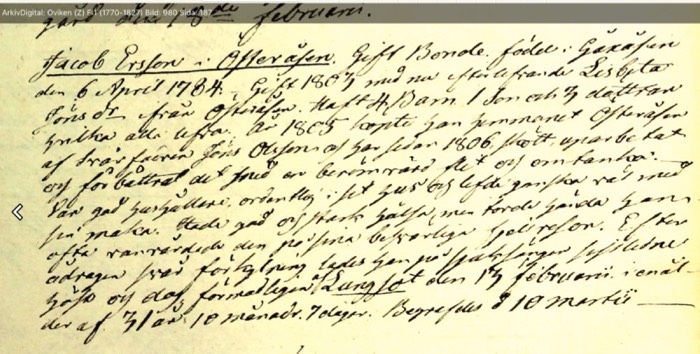 ArkivDigital: Oviken (Z) F:1 (1770-1827) Bild: 980 Sida: 387
februarii.
Jacob Ersson i Ofteråsen. Gift Bonde, född i Gåxåsen
den 6 April 1784. Gift 1807 med na efterlefvande Lisbeta
Jöns dr ifrån Ofteråsen. Haft 4 Barn 1 Son och 3 döttrar
hvilka alla lefva. År 1805 köpte han hemmanet Ofteråsen
af Svärfadren Jöns Olofsson och har sedan 1806 skött, uparbetat
och förbättrat det med en berömvärd flit och omtanka.
Var god hushållare, ordentlig i sit hus och lefde ganska väl med
sin maka. Hade god och stark hälsa, men torde hända
ofta vanvårdade den på sina besvärliga resor. Efter
ådragen svår förkylning lades han på sjuksängen
och dog förmodligen af Lungsot den 13 februarii i en ål-
der af 31 år 10 månadr. 7 dagar. Begrafdes d 10 martii